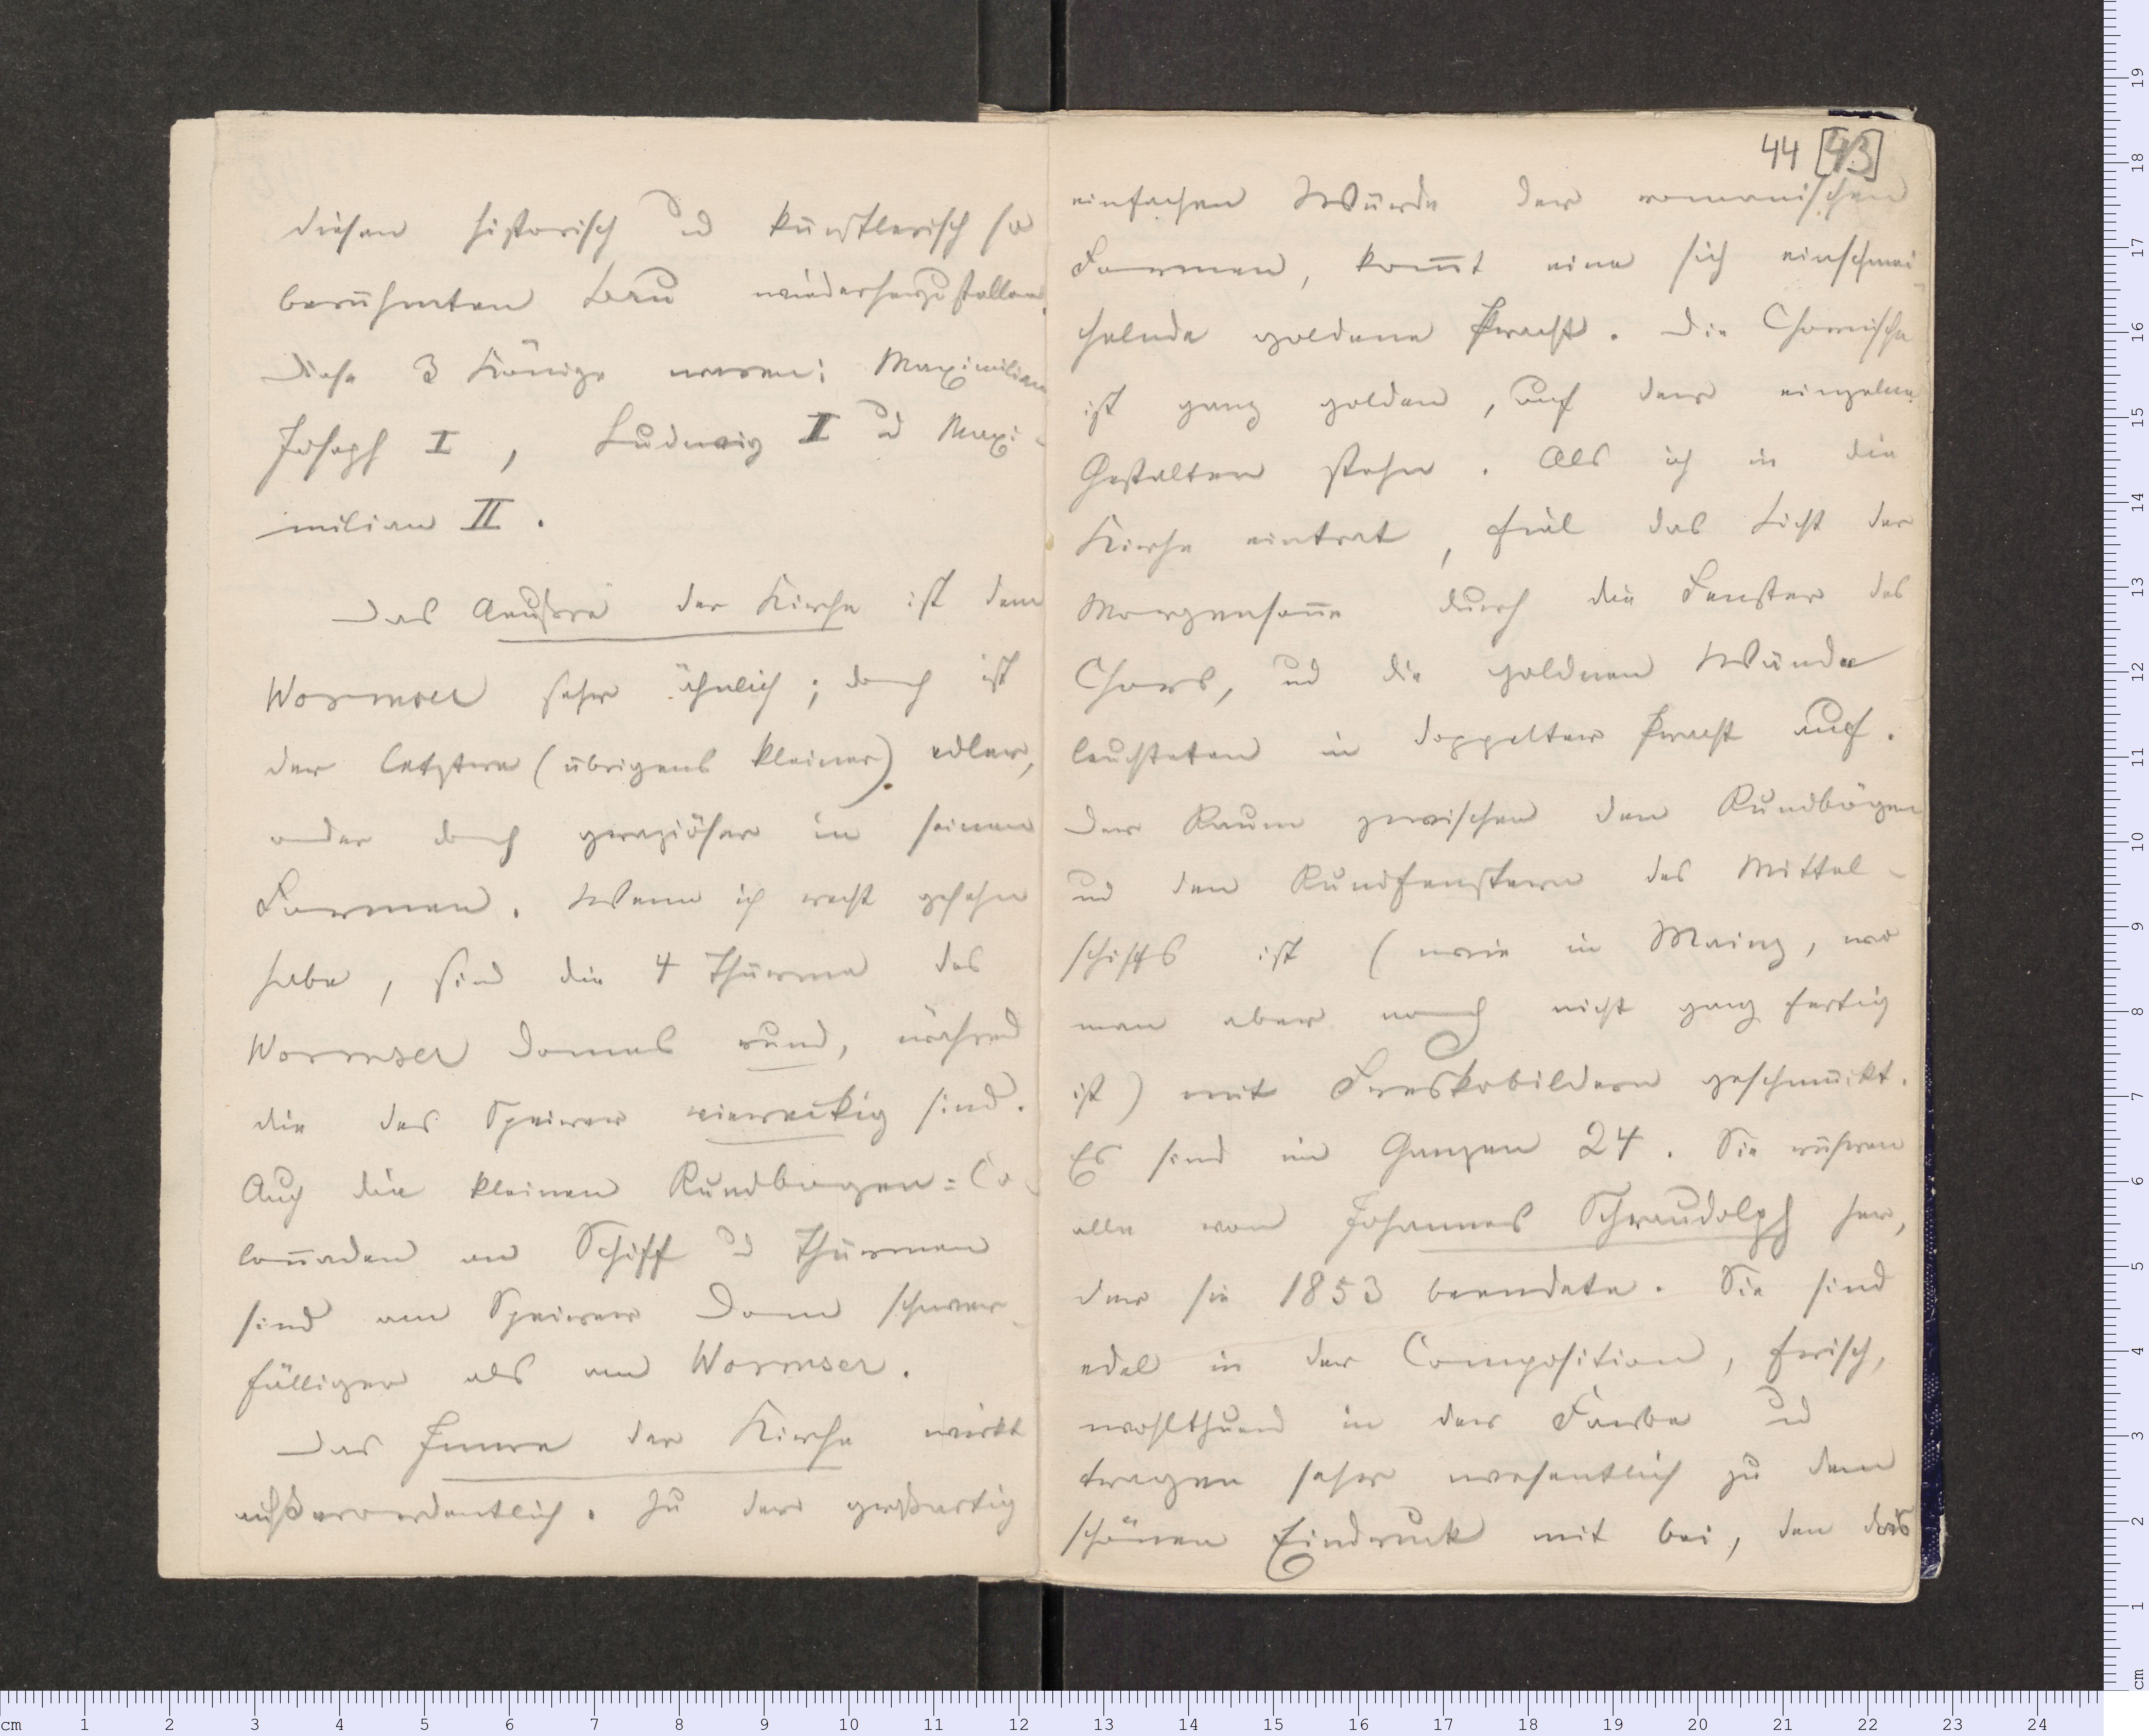 diesen historisch ud künstlerisch so
berühmten Bau wiederherzustellen.
Diese 3 Könige waren: Maximilian
Joseph I, Ludwig II ud Maxi-
milian II.
Das Aeußre der Kirche ist dem
Wormser sehr ähnlich; doch ist
der letztere (übrigens kleiner) edler,
oder doch graziöser in seinen
Formen. Wenn ich recht gesehn
habe, sind die 4 Thürme des
Wormser Domes rund, während
die des Speirer viereckig sind.
Auch die kleinen Rundbogen=Co-
lon̄aden an Schiff ud Thürmen
sind am Speirer Dom schwer-
fälliger als am Wormser.
Das Innre der Kirche wirkt
außerordentlich. Zu der großartig
44 [43]
einfachen Würde der romanischen
Formen, kom̄t eine sich einschmei-
chelnde goldene Pracht. Die Chornische
ist ganz golden, auf der einzelne
Gestalten stehn. Als ich in die
Kirche eintrat, fiel das Licht der
Morgenson̄e durch die Fenster des
Chors, und die goldnen Wände
leuchteten in doppelter Pracht auf.
Der Raum zwischen den Rundbögen
und den Rundfenstern des Mittel-
schiffs ist (wie in Mainz, wo
man aber noch nicht ganz fertig
ist) mit Freskobildern geschmückt.
Es sind im Ganzen 24. Sie rühren
alle von Johannes Schraudolph her,
der sie 1853 beendete. Sie sind
edel in der Composition, frisch,
wohlthuend in der Farbe ud
tragen sehr wesentlich zu dem
schönen Eindruck mit bei, den das
cm 1 2 3 4 5 6 7 8 9 10 11 12 13 14 15 16 17 18 19 20 21 22 23 24
cm 1 2 3 4 5 6 7 8 9 10 11 12 13 14 15 16 17 18 19